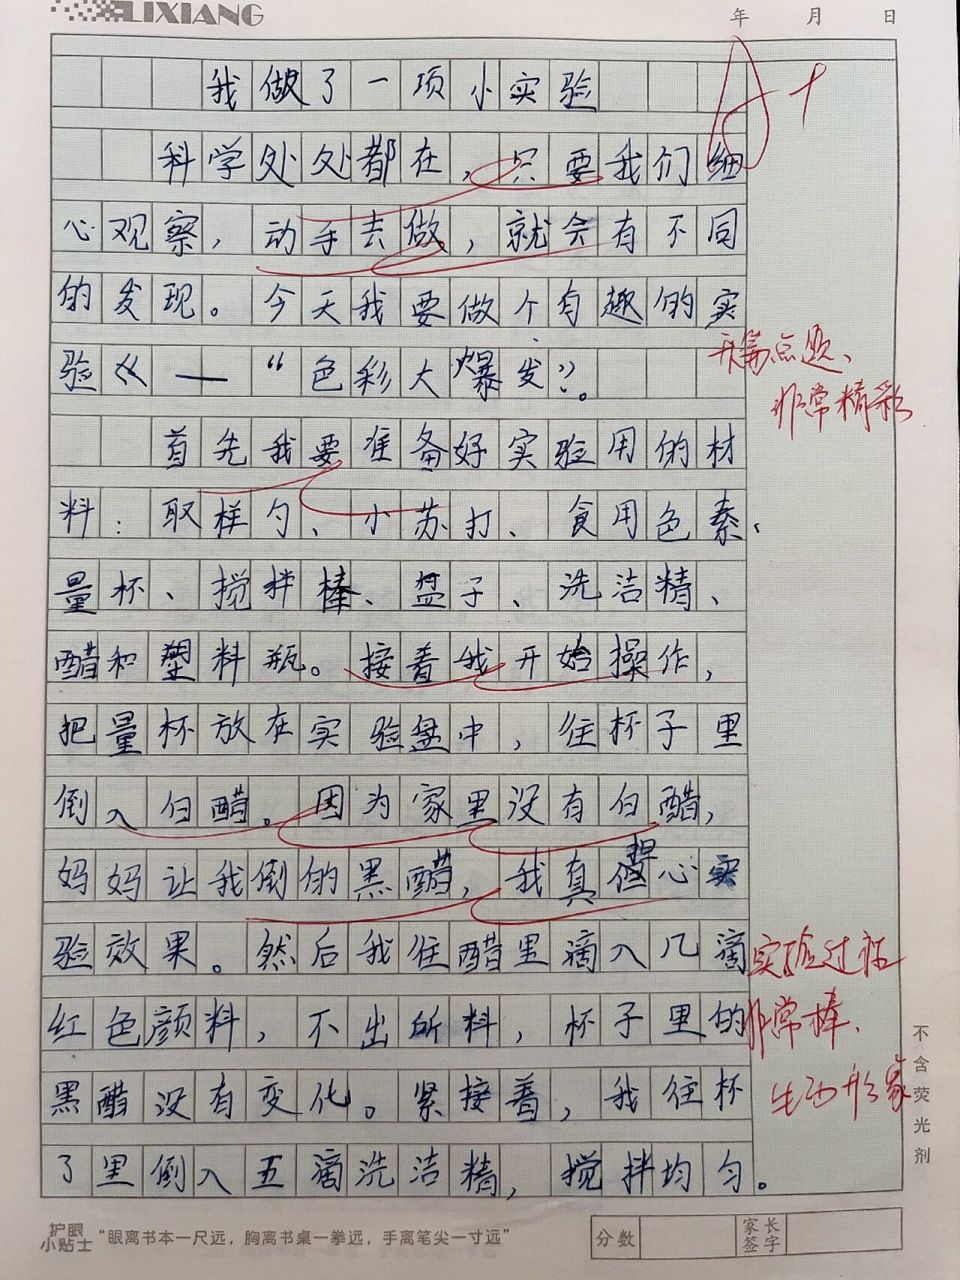 LIXIANG
年 月 日
A+
我做了一项小实验
科学处处都在，只要我们细
心观察，动手去做，就会有不同
的发现。今天我要做个有趣的实
验《—“色彩大爆发”。
开篇点题、
非常精彩
首先我要准备好实验用的材
料：取样勺、小苏打、食用色素、
量杯、搅拌棒、盘子、洗洁精、
醋和塑料瓶。接着我开始操作，
把量杯放在实验盘中，往杯子里
倒入白醋。因为家里没有白醋，
妈妈让我倒的黑醋，我真担心实
验效果。然后我住醋里滴入几滴
红色颜料，不出所料，杯子里的
黑醋没有变化。紧接着，我住杯
了里倒入五滴洗洁精，搅拌均匀。
实验过程
非常棒、
生动形象
不含荧光剂
护眼小贴士
“眼离书本一尺远，胸离书桌一拳远，手离笔尖一寸远”
分数
家长签字